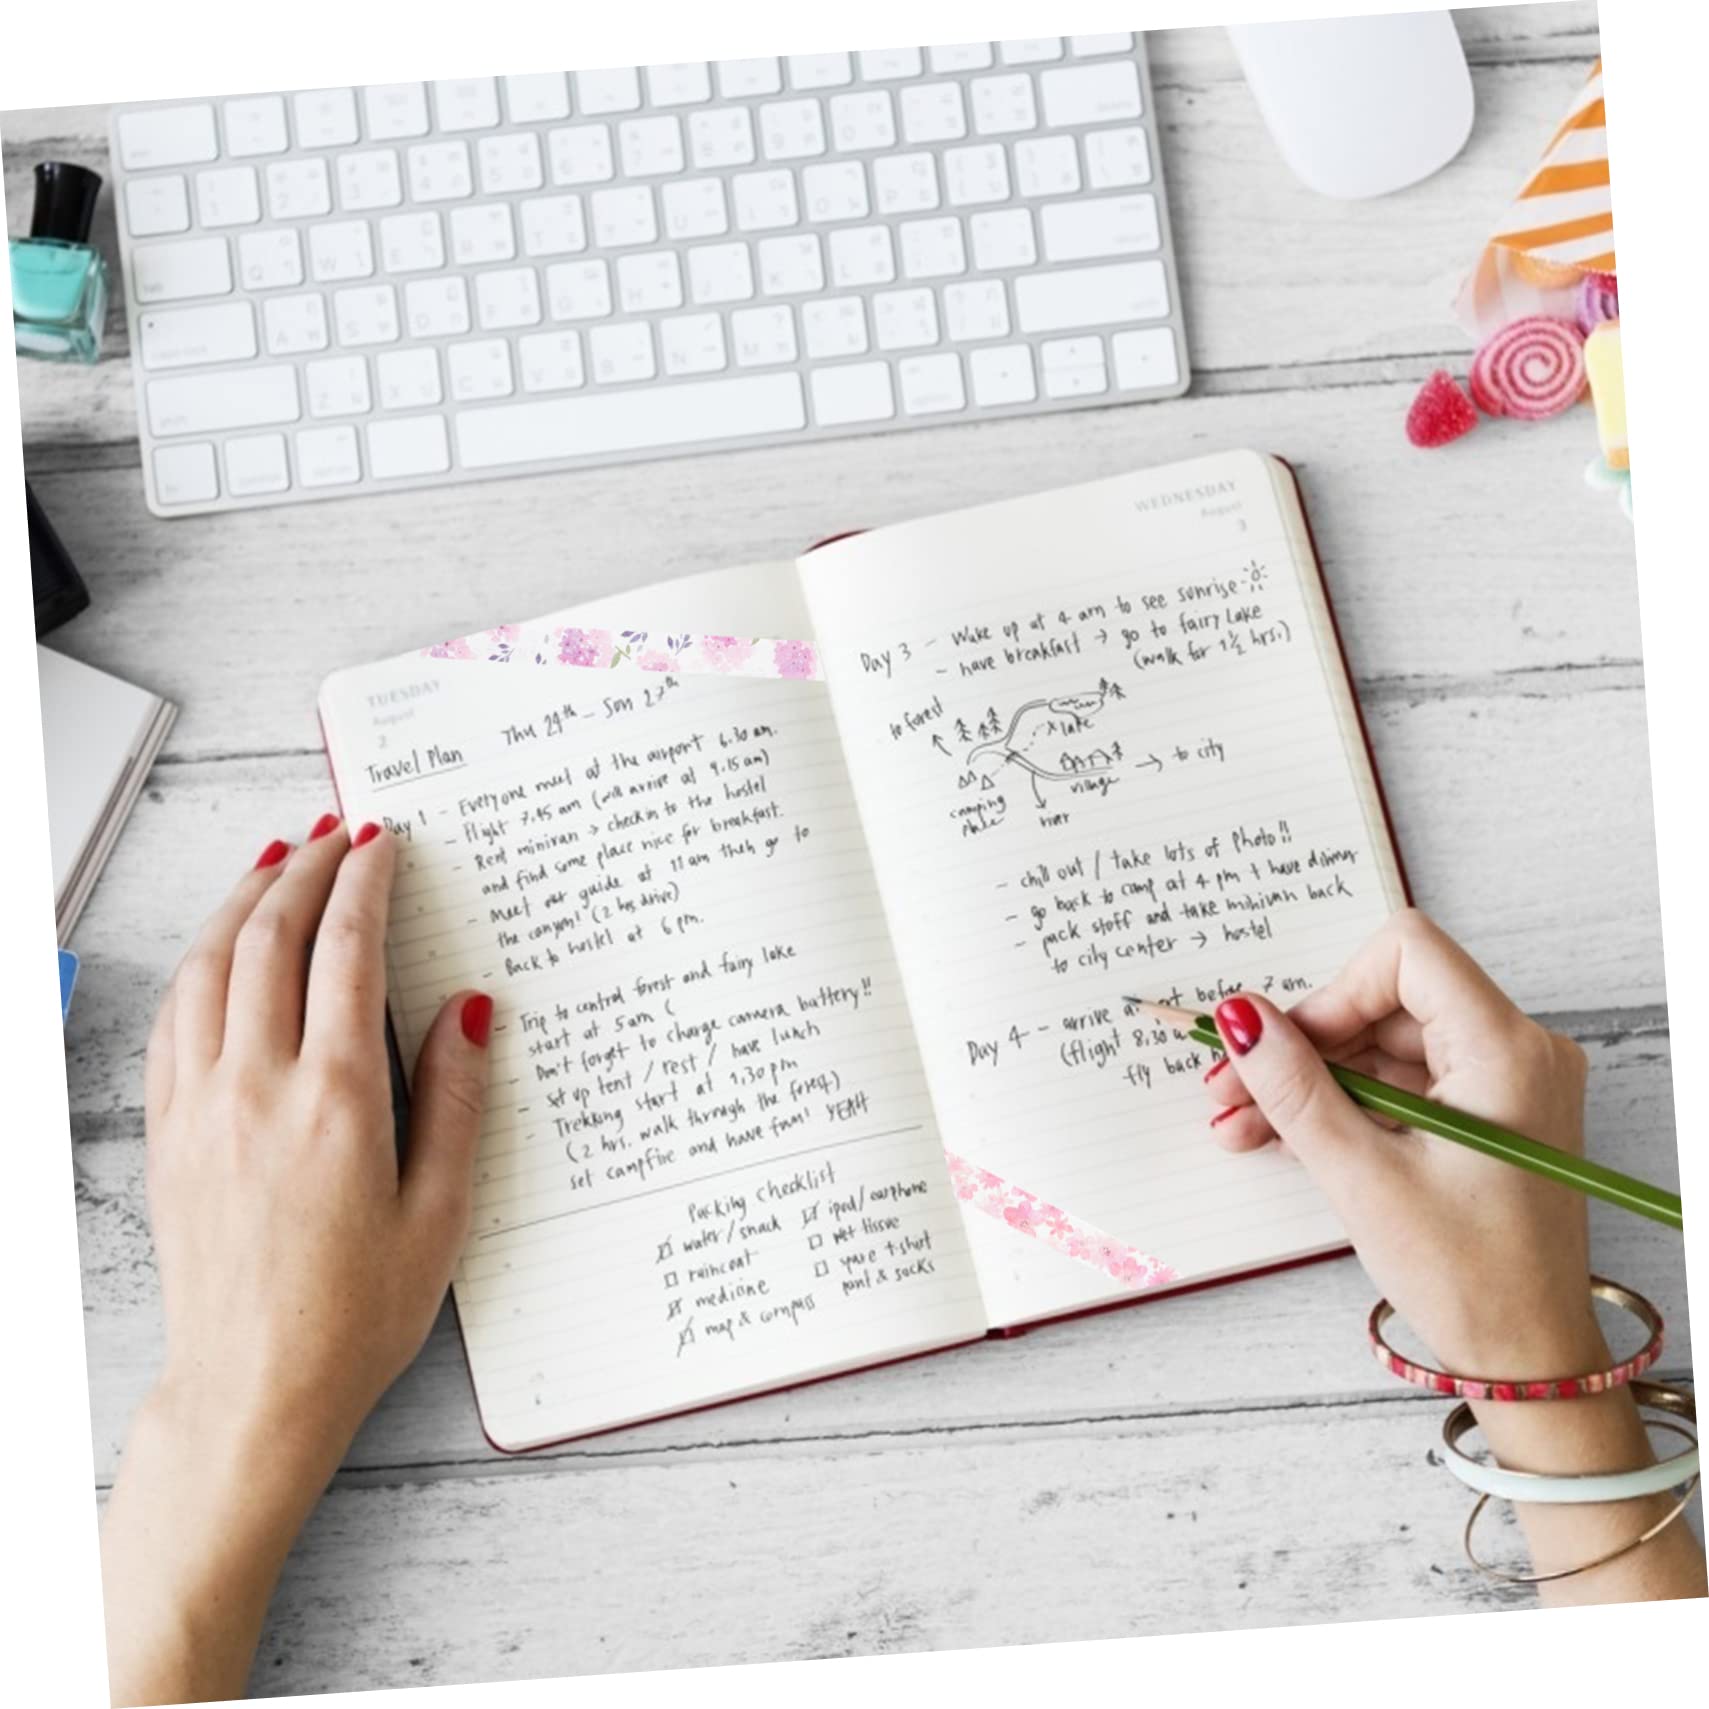 TUESDAY
August
2
Thu 24th - Sun 27th
Travel Plan
Day 1 - Everyone meet at the airport 6.30 am.
- Flight 7.45 am (will arrive at 9.15 am)
- Rent minivan → check in to the hostel
and find some place nice for breakfast.
- Meet our guide at 11 am then go to
the canyon! (2 hrs drive)
- Back to hostel at 6 pm.
- Trip to central forest and fairy lake
start at 5 am (
- Don't forget to charge camera battery!!
- set up tent / rest / have lunch
- Trekking start at 1,30 pm
(2 hrs. walk through the forest)
set campfire and have fun! YEAH
Packing Checklist
water / snack
raincoat
medicine
map & compass
ipod / earphone
wet tissue
spare t-shirt
pant & socks
WEDNESDAY
August
3
Day 3 - Wake up at 4 am to see sunrise
- have breakfast → go to fairy Lake
(walk for 1 1/2 hrs.)
to forest
lake
→ to city
village
camping
place
river
- chill out / take lots of photo!!
- go back to camp at 4 pm + have dinner
- pack stuff and take minivan back
to city center → hostel
Day 4 - arrive before 7 am.
(flight 8,30
fly back